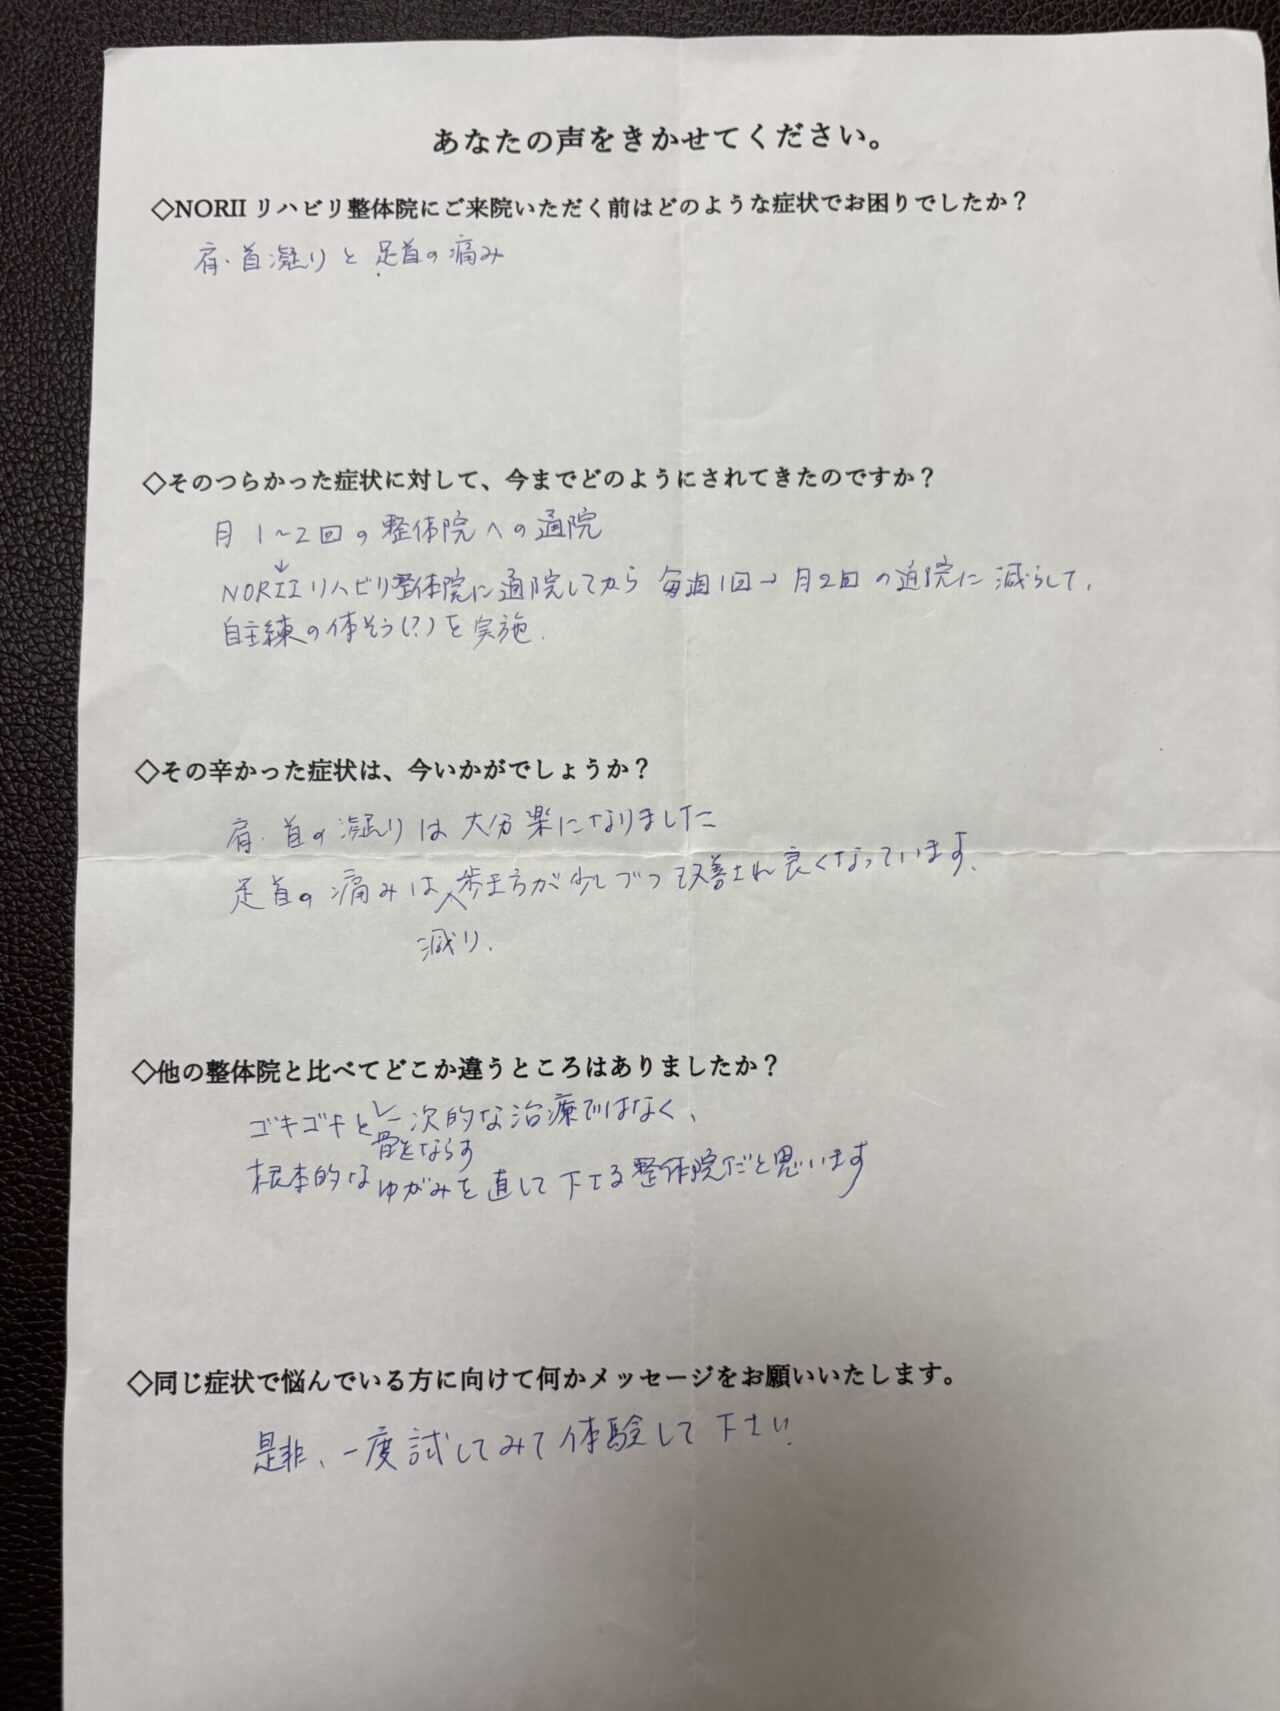 あなたの声をきかせてください。
◇NORII リハビリ整体院にご来院いただく前はどのような症状でお困りでしたか？
肩・首凝りと足首の痛み
◇そのつらかった症状に対して、今までどのようにされてきたのですか？
月1〜2回の整体院への通院
↓
NORIIリハビリ整体院に通院してから毎週1回→月2回の通院に減らして、
自主練の体そう(?)を実施.
◇その辛かった症状は、今いかがでしょうか？
肩・首の凝りは大分楽になりました
足首の痛みは歩き方が少しづつ改善され良くなっています.
減り、
◇他の整体院と比べてどこか違うところはありましたか？
ゴキゴキと一次的な治療ではなく、
骨をならす
根本的なゆがみを直して下さる整体院だと思います
◇同じ症状で悩んでいる方に向けて何かメッセージをお願いいたします。
是非、一度試してみて体験して下さい.